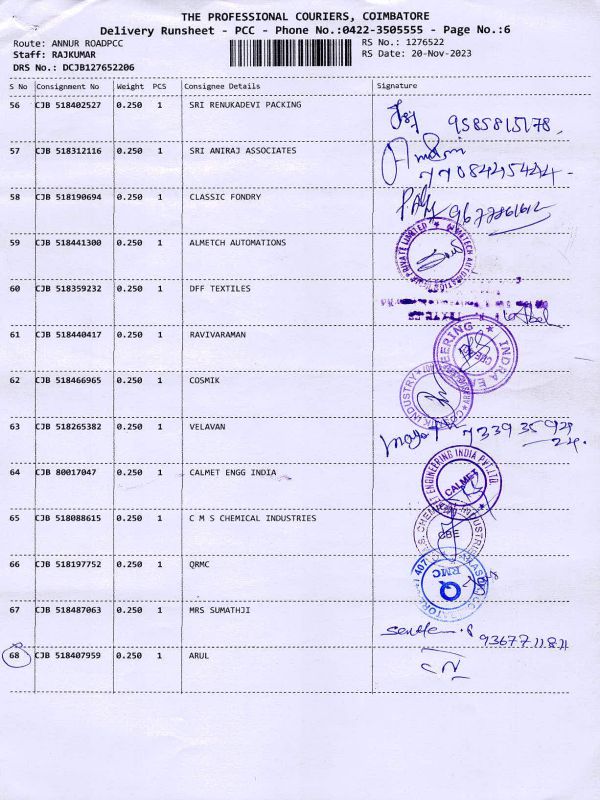 THE PROFESSIONAL COURIERS, COIMBATORE
Delivery Runsheet - PCC - Phone No.:0422-3505555 - Page No.:6
Route: ANNUR ROADPCC
RS No.: 1276522
Staff: RAJKUMAR
RS Date: 20-Nov-2023
DRS No.: DCJB127652206
S No Consignment No Weight PCS Consignee Details Signature
56 CJB 518402527 0.250 1 SRI RENUKADEVI PACKING
9585815178
57 CJB 518312116 0.250 1 SRI ANIRAJ ASSOCIATES
7708445444
58 CJB 518190694 0.250 1 CLASSIC FONDRY
59 CJB 518441300 0.250 1 ALMETCH AUTOMATIONS
PRIVATE LIMITED
60 CJB 518359232 0.250 1 DFF TEXTILES
61 CJB 518440417 0.250 1 RAVIVARAMAN
62 CJB 518466965 0.250 1 COSMIK
INDUSTRY
63 CJB 518265382 0.250 1 VELAVAN
64 CJB 80017047 0.250 1 CALMET ENGG INDIA
ENGINEERING INDIA PVT.LTD.
CALMET
65 CJB 518088615 0.250 1 C M S CHEMICAL INDUSTRIES
CBE
66 CJB 518197752 0.250 1 QRMC
Q
RMC
67 CJB 518487063 0.250 1 MRS SUMATHJI
68 CJB 518407959 0.250 1 ARUL